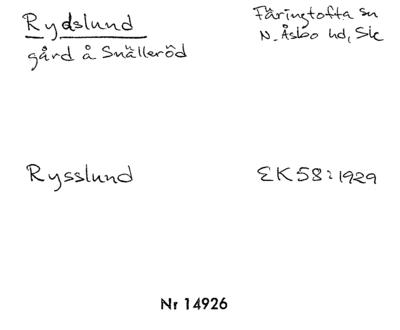 Rydslund
gård å Snälleröd
Färingtofta sn
N. Åsbo hd, Sk
Rysslund
EK58:1929
Nr 14926